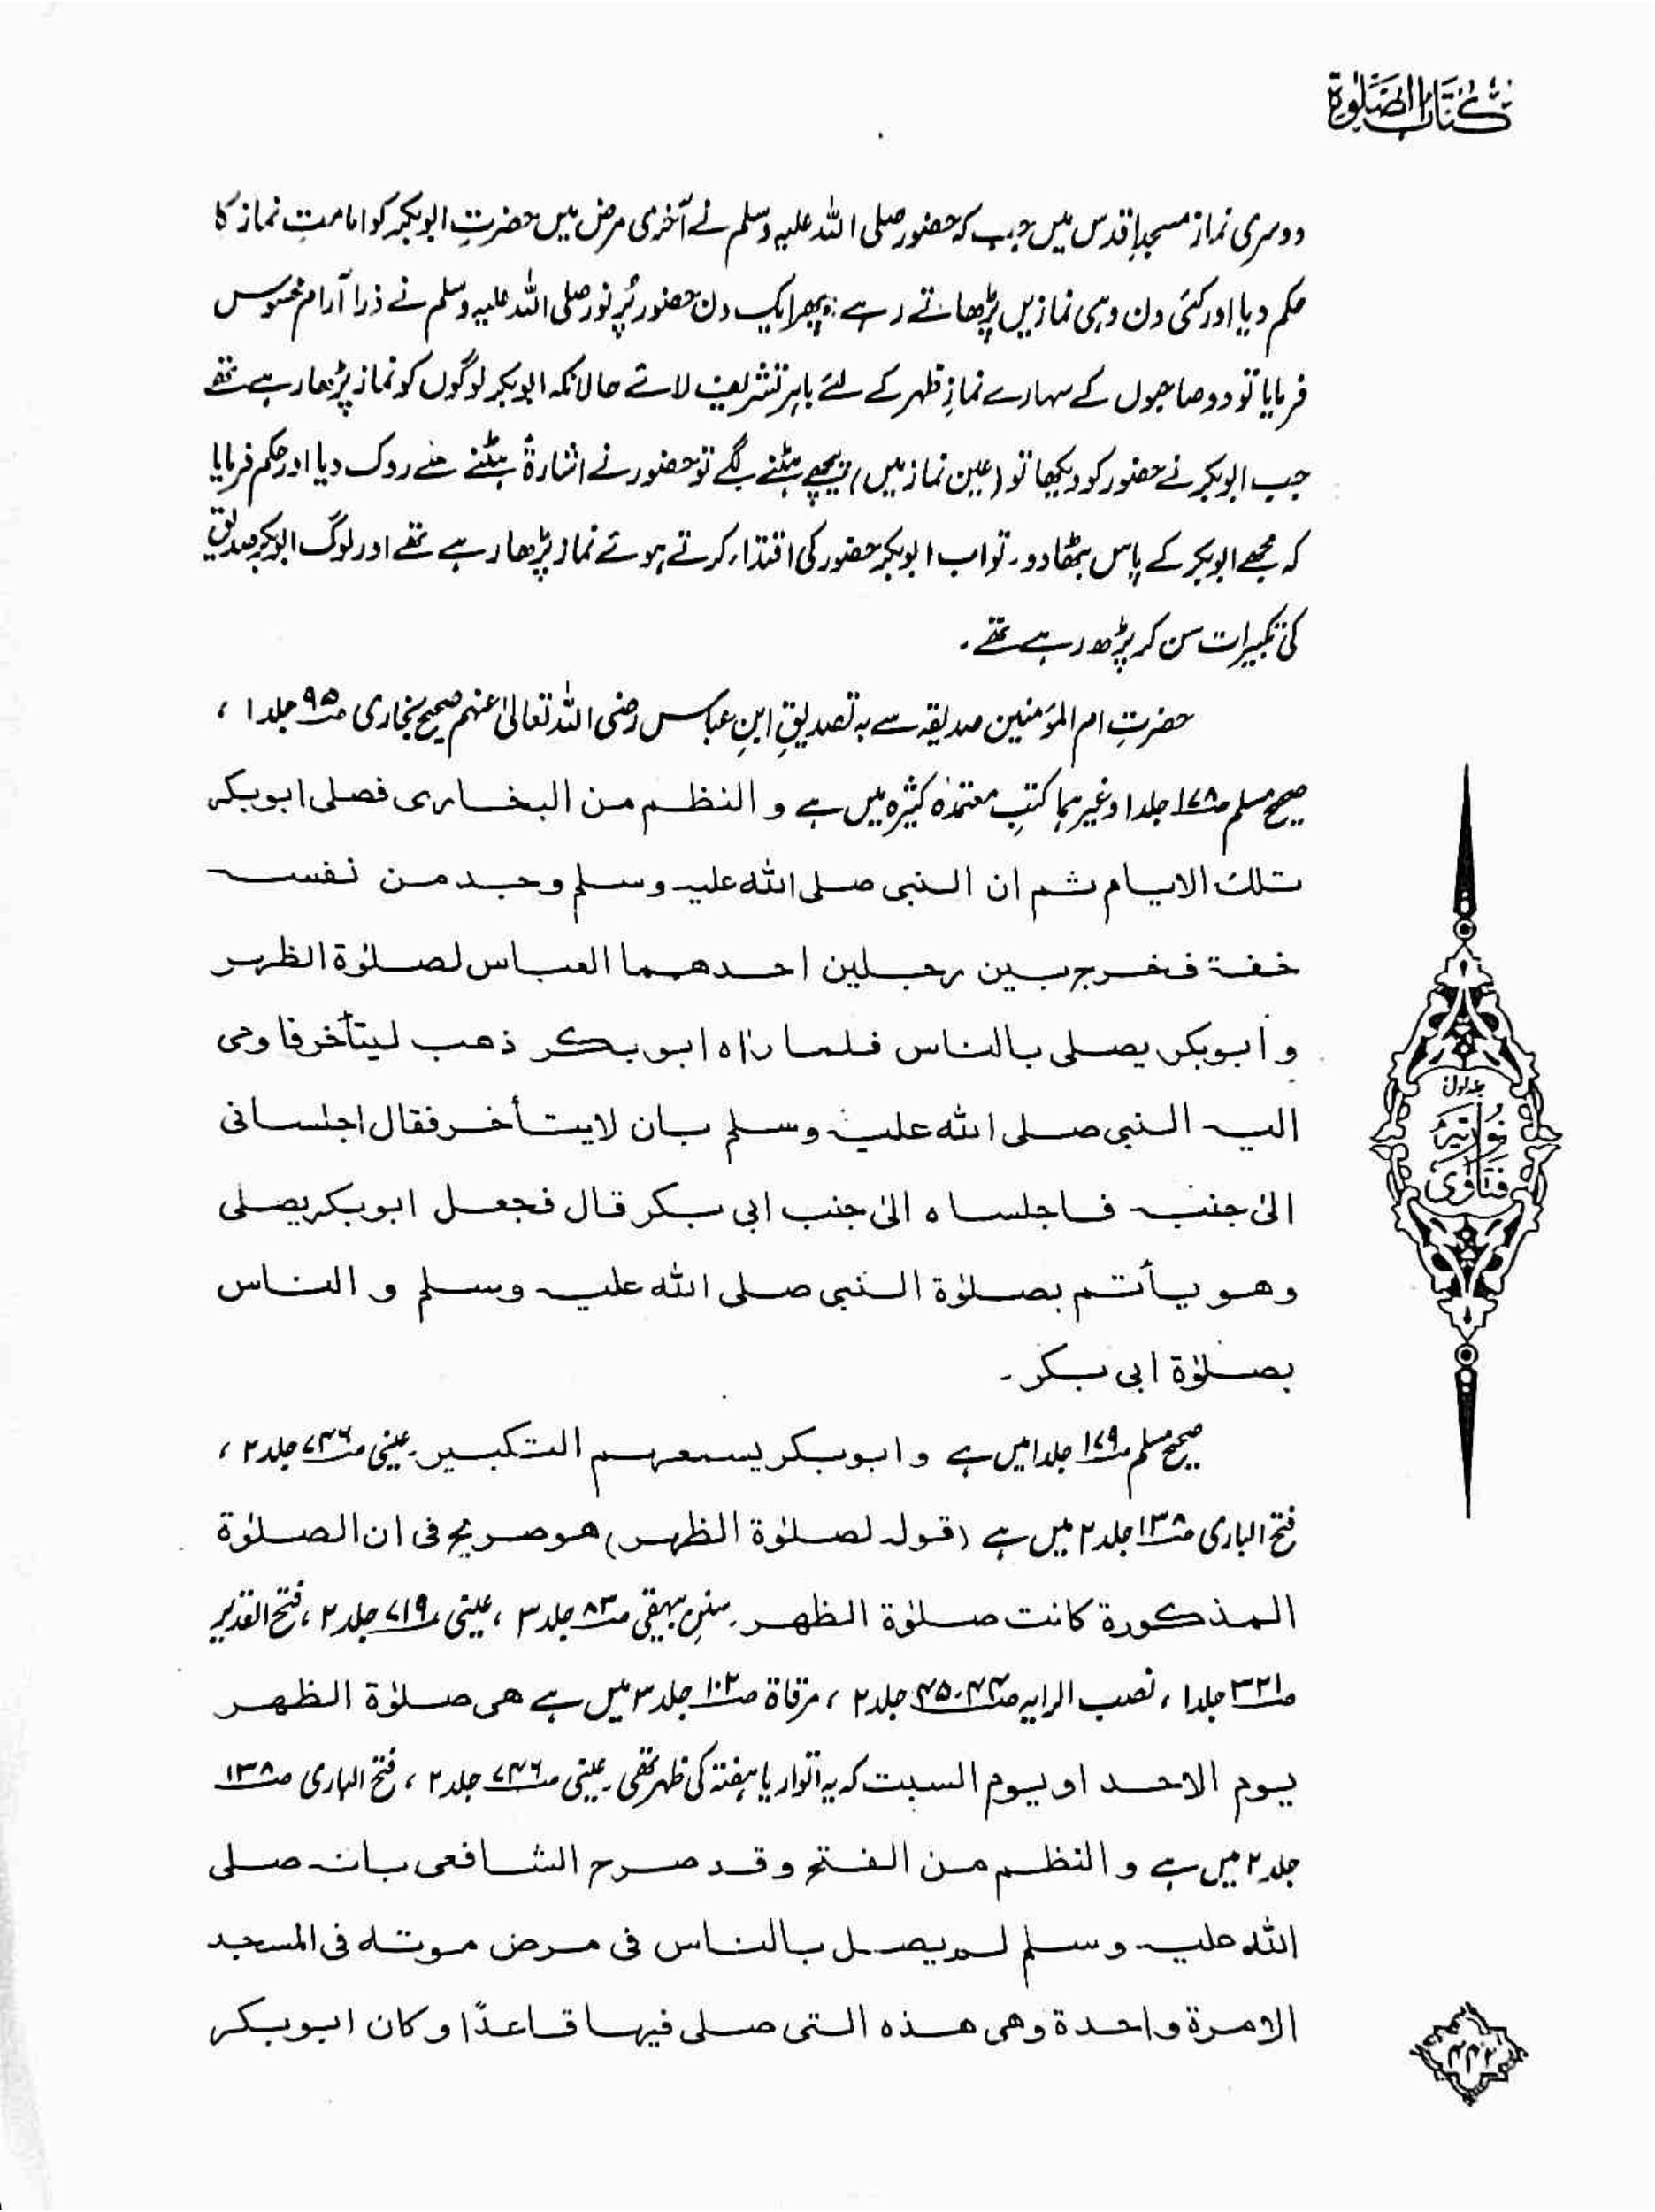 كتاب الصلوة
دوسری نماز مسجدِ اقدس میں جب کہ حضور صلی اللہ علیہ وسلم نے آخری مرض میں حضرتِ ابوبکر کو امامتِ نماز کا
حکم دیا اور کئی دن وہی نمازیں پڑھاتے رہے، پھر ایک دن حضور پُر نور صلی اللہ علیہ وسلم نے ذرا آرام محسوس
فرمایا تو دو صاحبوں کے سہارے نمازِ ظہر کے لئے باہر تشریف لائے حالانکہ ابوبکر لوگوں کو نماز پڑھا رہے تھے
جب ابوبکر نے حضور کو دیکھا تو (عین نماز میں) پیچھے ہٹنے لگے تو حضور نے اشارۃً ہٹنے سے روک دیا اور حکم فرمایا
کہ مجھے ابوبکر کے پاس بٹھا دو۔ تو اب ابوبکر حضور کی اقتداء کرتے ہوئے نماز پڑھا رہے تھے اور لوگ ابوبکر صدیق
کی تکبیرات سن کر پڑھ رہے تھے۔
حضرتِ ام المؤمنین صدیقہ سے بہ تصدیقِ ابنِ عباس رضی اللہ تعالیٰ عنہم صحیح بخاری ص۹۵ جلد ۱،
صحیح مسلم ص۱۷۸ جلد ۱ وغیرہما کتبِ معتمدہ کثیرہ میں ہے و النظم من البخاری فصلی ابوبکر
تلك الایام ثم ان النبی صلی اللہ علیہ وسلم وجد من نفسہ
خفۃ فخرج بین رجلین احدهما العباس لصلوٰۃ الظهر
و ابوبکر یصلی بالناس فلما راٰہ ابوبکر ذهب لیتأخر فاومی
الیہ النبی صلی اللہ علیہ وسلم بان لا یتأخر فقال اجلسانی
الیٰ جنبہ فاجلساہ الیٰ جنب ابی بکر قال فجعل ابوبکر یصلی
وهو یأتم بصلوٰۃ النبی صلی اللہ علیہ وسلم و الناس
بصلوٰۃ ابی بکر۔
صحیح مسلم ص۱۷۹ جلد ۱ میں ہے و ابوبکر یسمعهم التکبیر۔ عینی ص۷۴۶ جلد ۲،
فتح الباری ص۱۳۸ جلد ۲ میں ہے (قولہ لصلوٰۃ الظهر) هو صریح فی ان الصلوٰۃ
المذکورۃ کانت صلوٰۃ الظهر۔ سننِ بیہقی ص۸۳ جلد ۳، عینی ص۷۱۹ جلد ۲، فتح القدیر
ص۳۲۱ جلد ۱، نصب الرایہ ص۴۴۔۴۵ جلد ۲، مرقاۃ ص۱۰۲ جلد ۳ میں ہے هی صلوٰۃ الظهر
یوم الاحد او یوم السبت کہ یہ اتوار یا ہفتہ کی ظہر تھی۔ عینی ص۷۴۶ جلد ۲، فتح الباری ص۱۳۸
جلد ۲ میں ہے و النظم من الفتح وقد صرح الشافعی بانہ صلی
اللہ علیہ وسلم لم یصل بالناس فی مرض موتہ فی المسجد
الا مرۃ واحدۃ وهی هذہ التی صلی فیها قاعدًا و کان ابوبکر
جلد اول
فتاوی نوریہ